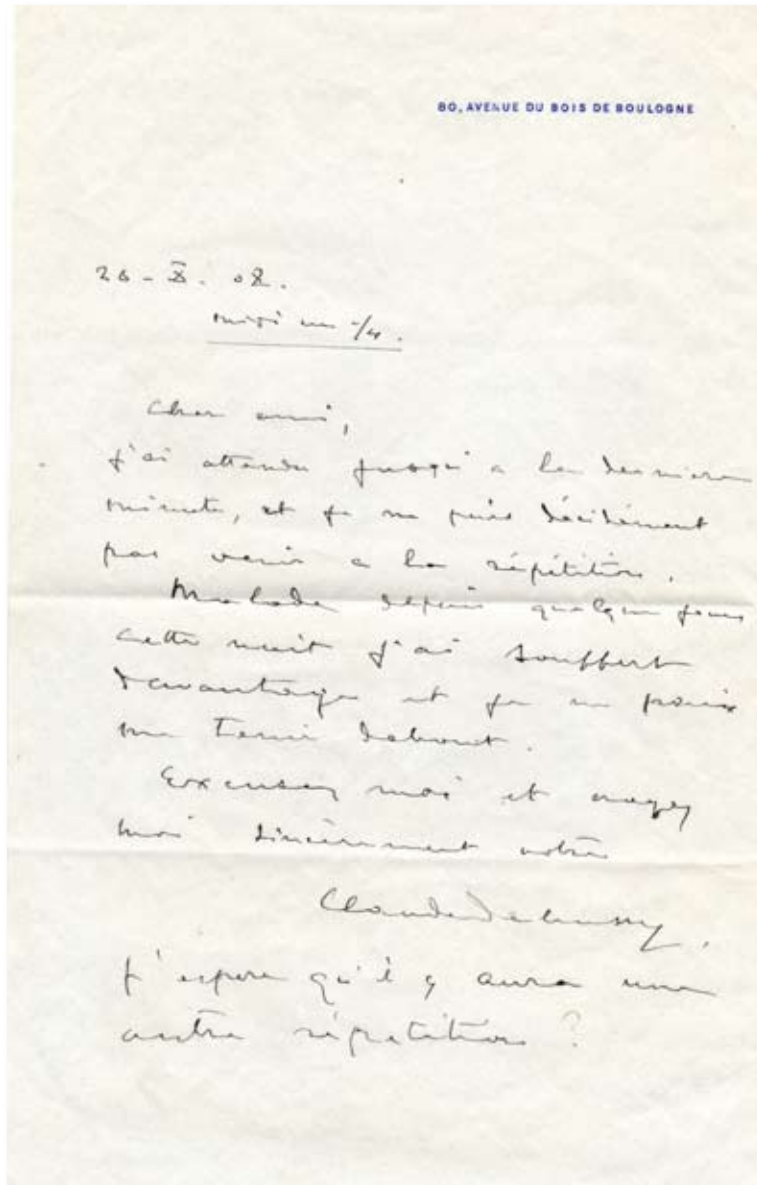 80, AVENUE DU BOIS DE BOULOGNE
26 - X. 08.
midi un 1/4.
Cher ami,
j'ai attendu jusqu'a la derniere
minute, et je ne puis décidément
pas venir a la répétition.
Malade depuis quelques jours
cette nuit j'ai souffert
davantage et je ne puis
me tenir debout.
Excusez moi et croyez
moi sincèrement votre
Claude Debussy.
J'espere qu'il y aura une
autre répetition ?